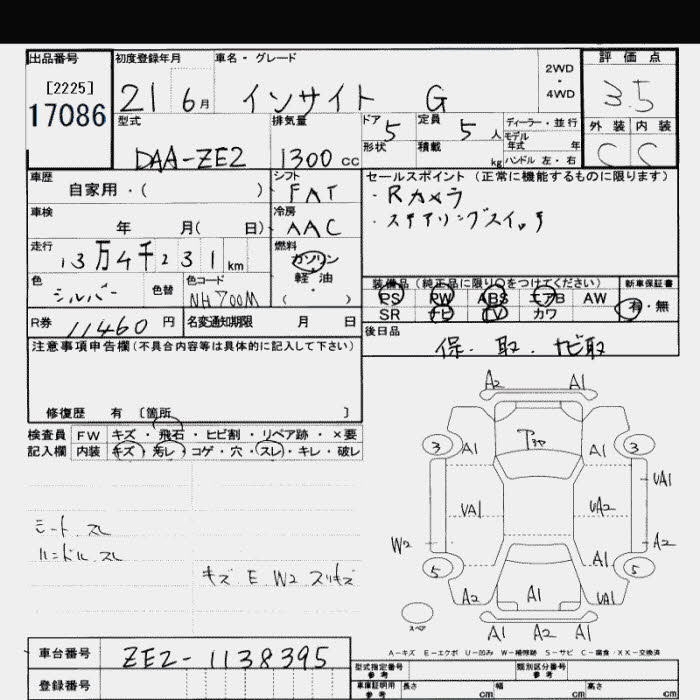 出品番号 初度登録年月 車名・グレード 2WD ・ 4WD 評価点
[2225]
17086
21 6月 インサイト G 3.5
型式 排気量 ドア 定員 ディーラー・並行 外装 内装
DAA-ZE2 1300cc 5 5人 モデル年式 年 C C
形状 積載 kg ハンドル 左・右
車歴 シフト セールスポイント (正常に機能するものに限ります)
自家用・( ) FAT ・Rカメラ
車検 冷房 ・ステアリングスイッチ
年 月( 日) AAC
走行 燃料
13万4千231km ガソリン
色 色替 色コード 軽油 装備品 (純正品に限り○をつけてください) 新車保証書
シルバー NH700M ( ・ ) PS PW ABS エアB AW 有・無
R券 11460円 名変通知期限 月 日 SR ナビ TV カワ
後日品
注意事項申告欄 (不具合内容等は具体的に記入して下さい) 保・取・ナビ取
修復歴 有 [箇所 ]
検査員 FW キズ・飛石・ヒビ割・リペア跡・×要
記入欄 内装 キズ・汚レ・コゲ・穴・スレ・キレ・破レ
A2 A1
3 A1 A1 3
UA1
UA1 UA2
シート スレ
ハンドル スレ
W2 A2
キズ E W2 スリキズ
5 A1 5
A2 A1 UA1
スペア
A1 A2 A1
A-キズ E-エクボ U-凹み W-補修跡 S-サビ C-腐食 XX-交換済
車台番号 ZE2-1138395
型式指定番号 参考 類別区分番号 参考
登録番号
車庫証明用 参考 長さ cm 幅 cm 高さ cm